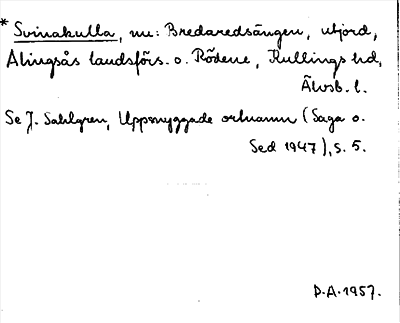 * Svinakulla, nu: Bredaredsängen, utjord,
Alingsås landsförs. o. Rödene, Kullings hd,
Älvsb. l.
Se J. Sahlgren, Uppsnyggade ortnamn (Saga o.
Sed 1947), s. 5.
P.A. 1957.